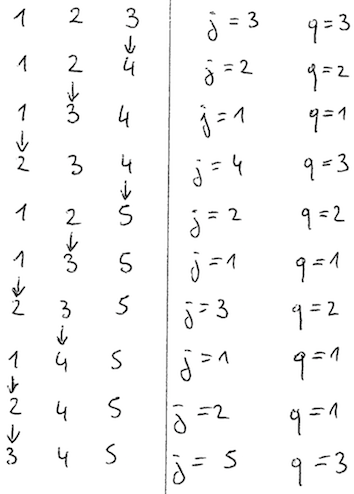 1 2 3 j=3 q=3
↓
1 2 4 j=2 q=2
↓
1 3 4 j=1 q=1
↓
2 3 4 j=4 q=3
↓
1 2 5 j=2 q=2
↓
1 3 5 j=1 q=1
↓
2 3 5 j=3 q=2
↓
1 4 5 j=1 q=1
↓
2 4 5 j=2 q=1
↓
3 4 5 j=5 q=3